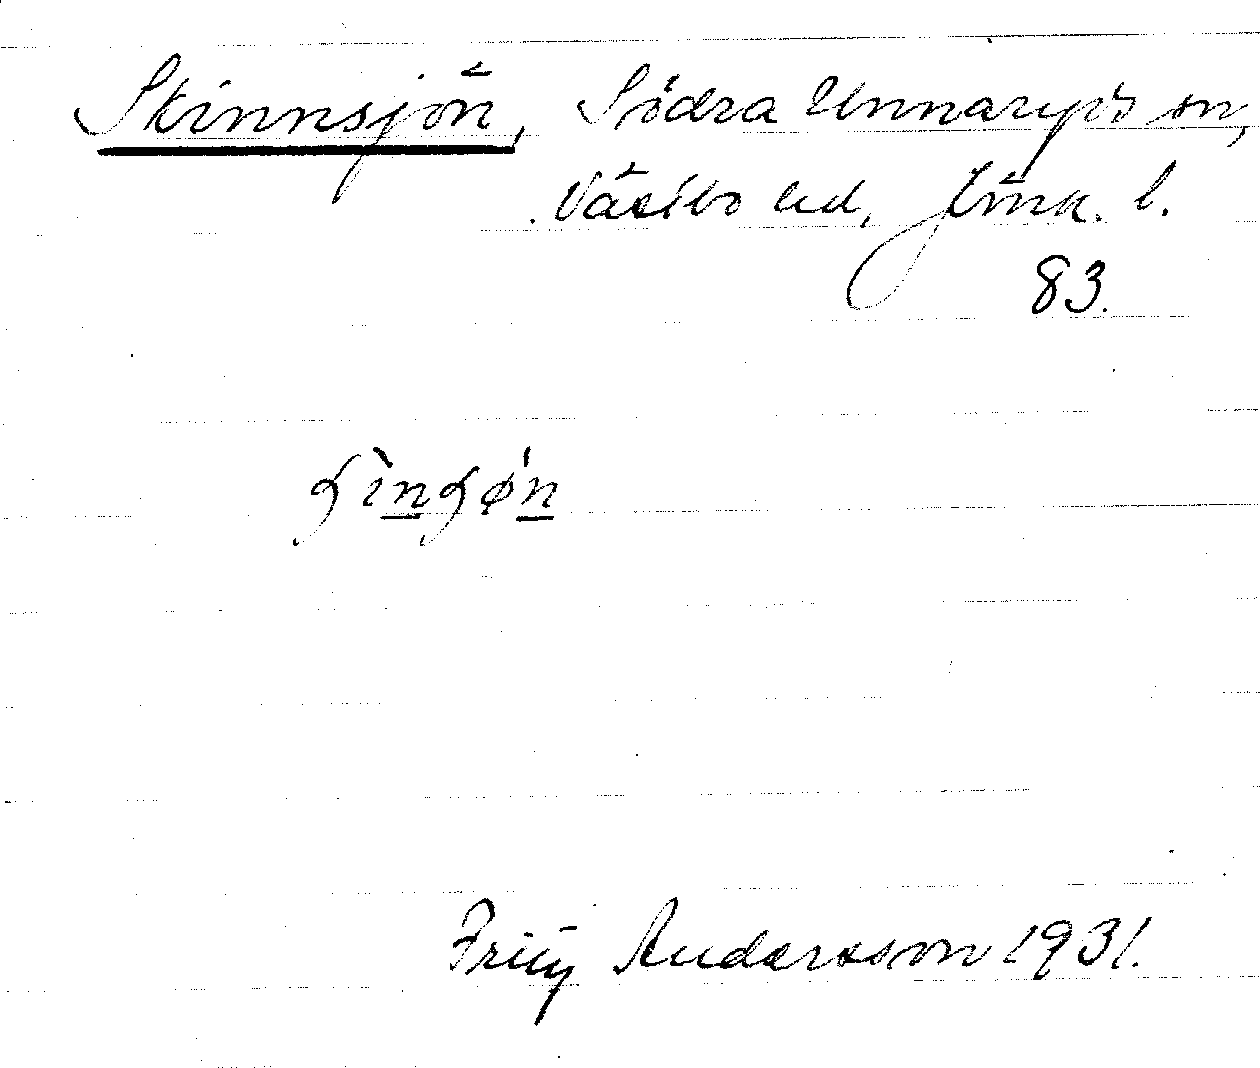 Skinnsjön, Södra Unnaryds sn,
Västbo hd, Jönk. l.
83.
Fritz Andersson 1931.